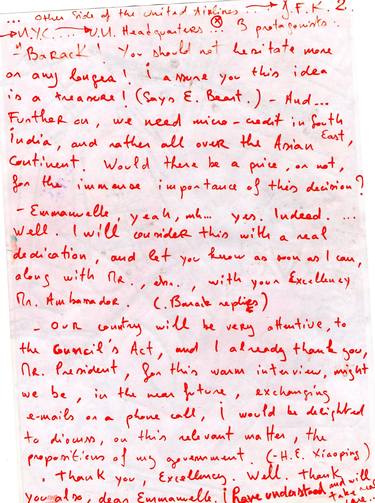 ... Other side of the United Airlines ... → J.F.K. 2.
→ N.Y.C. ... → U.N. Headquarters ... 3 protagonists.
- "Barack! You should not hesitate more
or any longer! i assure you this idea
is a treasure! (Says E. Beart.) - And...
Further on, we need micro-credit in South
India, and rather all over the Asian East,
Continent. Would there be a price, or not,
for the immense importance of this decision?
- Emmanuelle, yeah, mh... yes. Indeed. ...
Well. I will consider this with a real
dedication, and let you know as soon as I can,
along with Mr., , with your Excellency
Mr. Ambassador. (. Barack replies)
- Our country will be very attentive, to
the Council's Act, and I already thank you,
Mr. President, for this warm interview, might
we be, in the near future, exchanging
e-mails or a phone call, i would be delighted
to discuss, on this relevant matter, the
propositions of my government. (-H.E. Xiaoping)
. Thank you, Excellency. Well. Thank
you also, dear Emmanuelle. i have understand and will
take